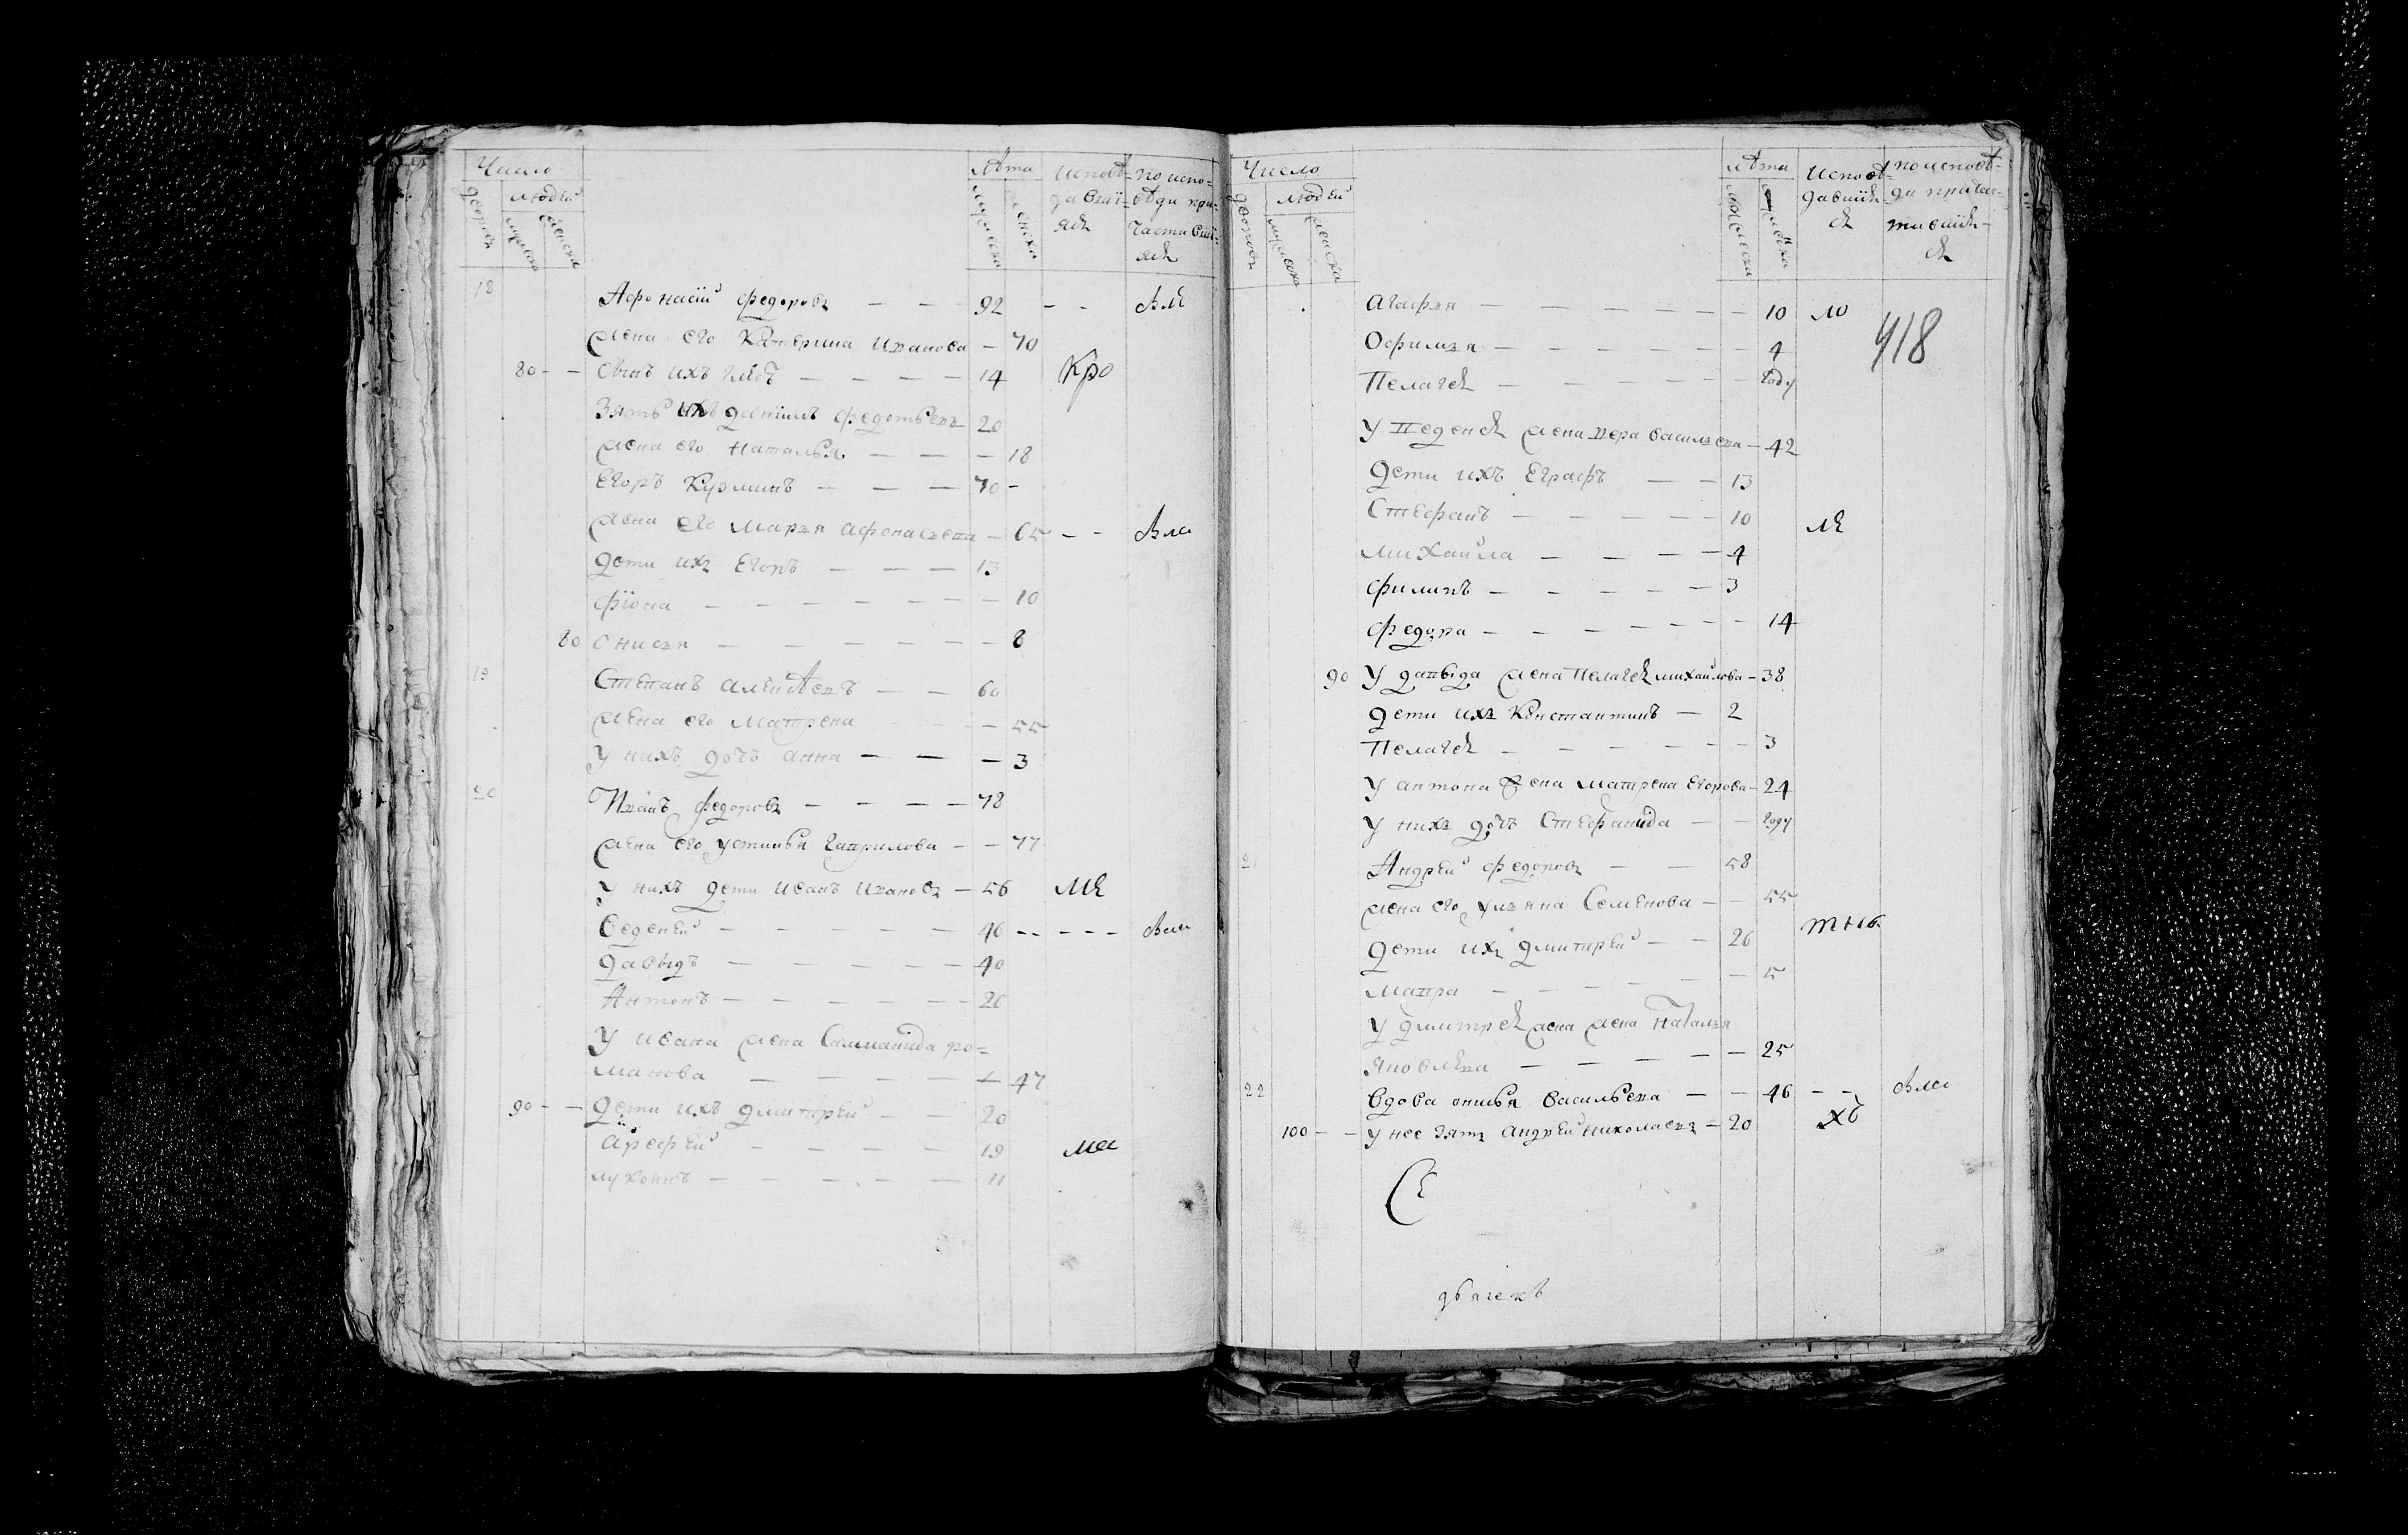 Число
людей
дворовъ
мужеска
женска
лѣта
мужеска
женска
исповѣ=
давшї=
яся
по испо=
вѣди при=
частившї=
яся
18 Афонасїй федоровъ — — — 92 - -
жена его Катерина иванова — 70
80 - — сынъ ихъ глѣбъ — — — — 14 Кро
Зять ихъ данїилъ федотьевъ 20
жена его Наталья — — — 18
Егоръ Кузминъ — — — 70 -
жена его Марья афонасьева — 65 - -
дети ихъ Егоръ — — — 13
фїона — — — — — — — 10
80 онисья — — — — — — 8
19 Степанъ алеѯѣевъ — — 60
жена его Матрена — 55
у нихъ дочь анна — — — 3
20 Иванъ федоровъ — — — — 78
жена его устинья гаврилова — — 77
у нихъ дети иванъ ивановъ — 56
веденей — — — — — — 46 - - - - -
давыдъ — — — — — 40
Антонъ — — — — — — 20
У ивана жена Саламанида ро=
манова — — — — — — 47
90 - — дети ихъ дмитрей — — 20
арефей — — — — 19
лукоянъ — — — — — 11
Число
людей
дворовъ
мужеска
женска
лѣта
мужеска
женска
исповѣ=
давшїя=
ся
по исповѣ=
ди причас=
тившїя=
ся
агафья — — — — — — 10
418
Офимья — — — — — — 4
Пелагея — — — — — году
У веденея жена вера васильева — 42
дети ихъ Еграфъ — — 13
Стефанъ — — — — — 10
михайла — — — — 4
филипъ — — — — — 3
федора — — — — — — — 14
90 У давыда жена Пелагея михайлова — 38
дети ихъ Константинъ — 2
Пелагея — — — — — — 3
У антона жена матрена Егорова — 24
У нихъ дочь Стефанида — — году
21 Андрей федоровъ — — 58
жена его ульяна Семенова — — 55
дети ихъ дмитрей — — 26
мавра — — — — — — 5
У дмитрея жена жена Наталья
яковлева — — — — — 25
22 вдова онисья васильева — — 46 - -
100 - — у нее зять андрей николаевъ — 20
Се
дьячекъ